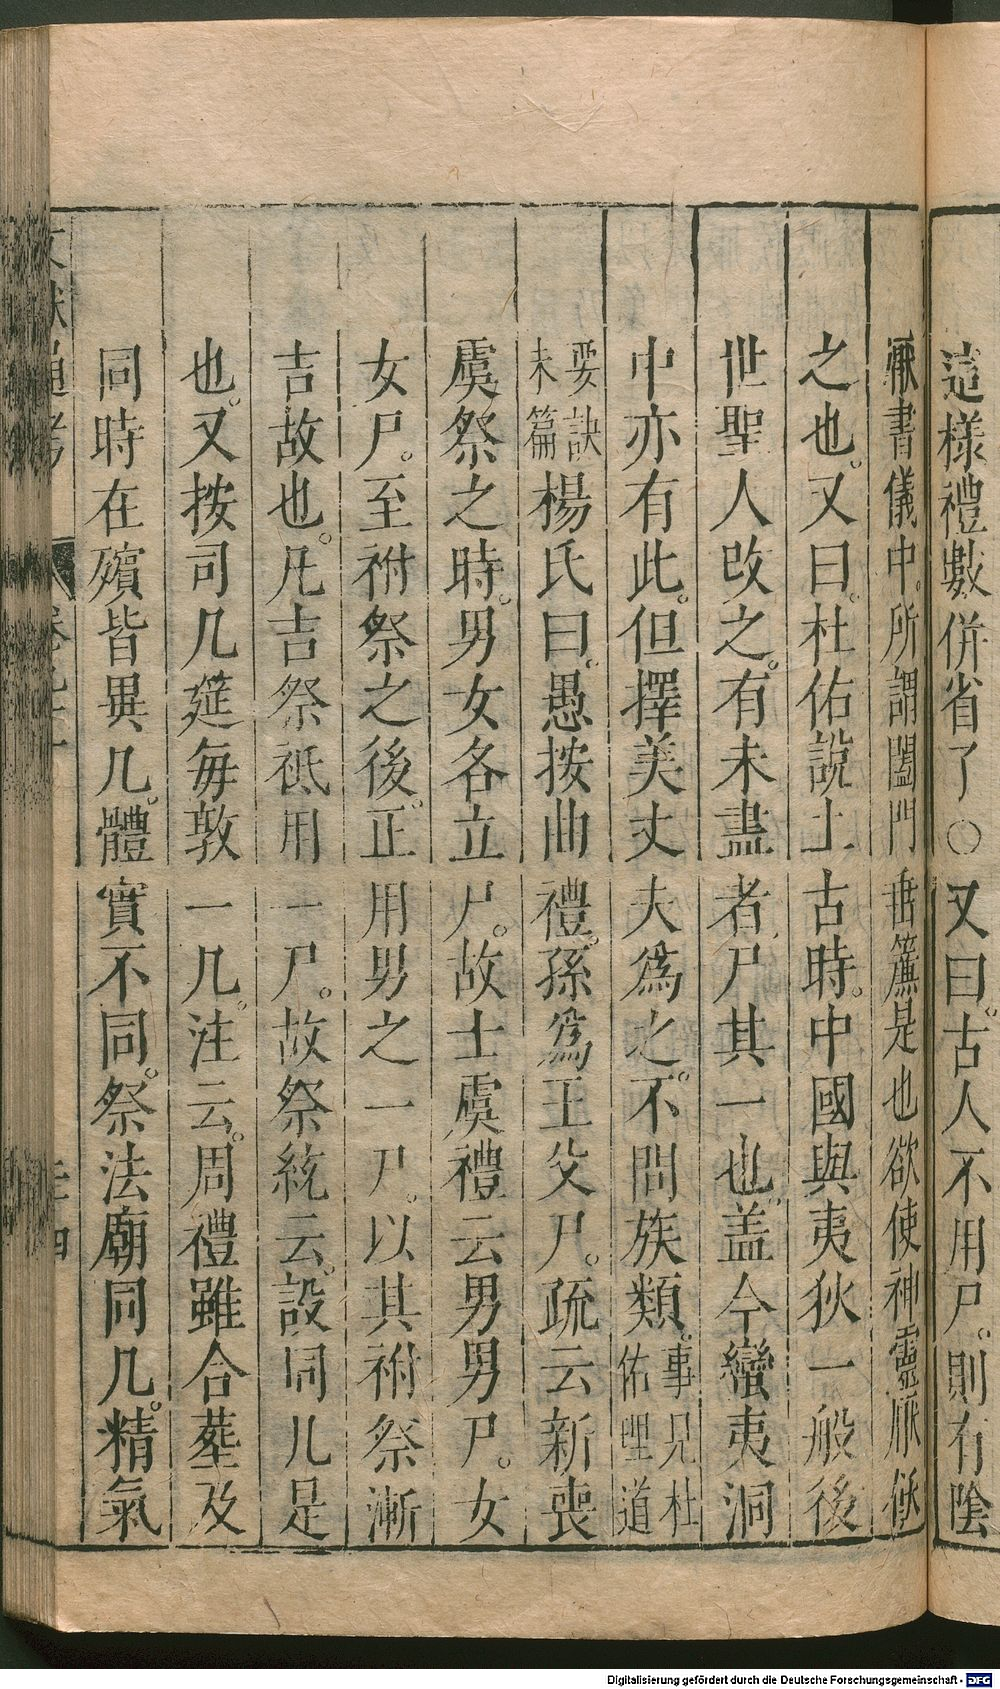 這樣禮數併省了○又曰。古人不用尸。則有陰
厭書儀中。所謂闔門垂簾是也欲使神靈厭飫
之也。又曰。杜佑說上古時。中國與夷狄一般後
世聖人改之。有未盡者尸其一也。蓋今蠻夷洞
中亦有此。但擇美丈夫爲之。不問族類。事見杜佑理道
要訣末篇楊氏曰。愚按曲禮。孫爲王父尸。疏云新喪
虞祭之時。男女各立尸。故士虞禮云男男尸。女
女尸。至祔祭之後。正用男之一尸。以其祔祭漸
吉故也。凡吉祭祗用一尸。故祭統云。設同几是
也。又按司几筵每敦一几。注云。周禮雖合葬及
同時在殯皆異几。體實不同。祭法廟同几。精氣
文獻通考
Digitalisierung gefördert durch die Deutsche Forschungsgemeinschaft - DFG